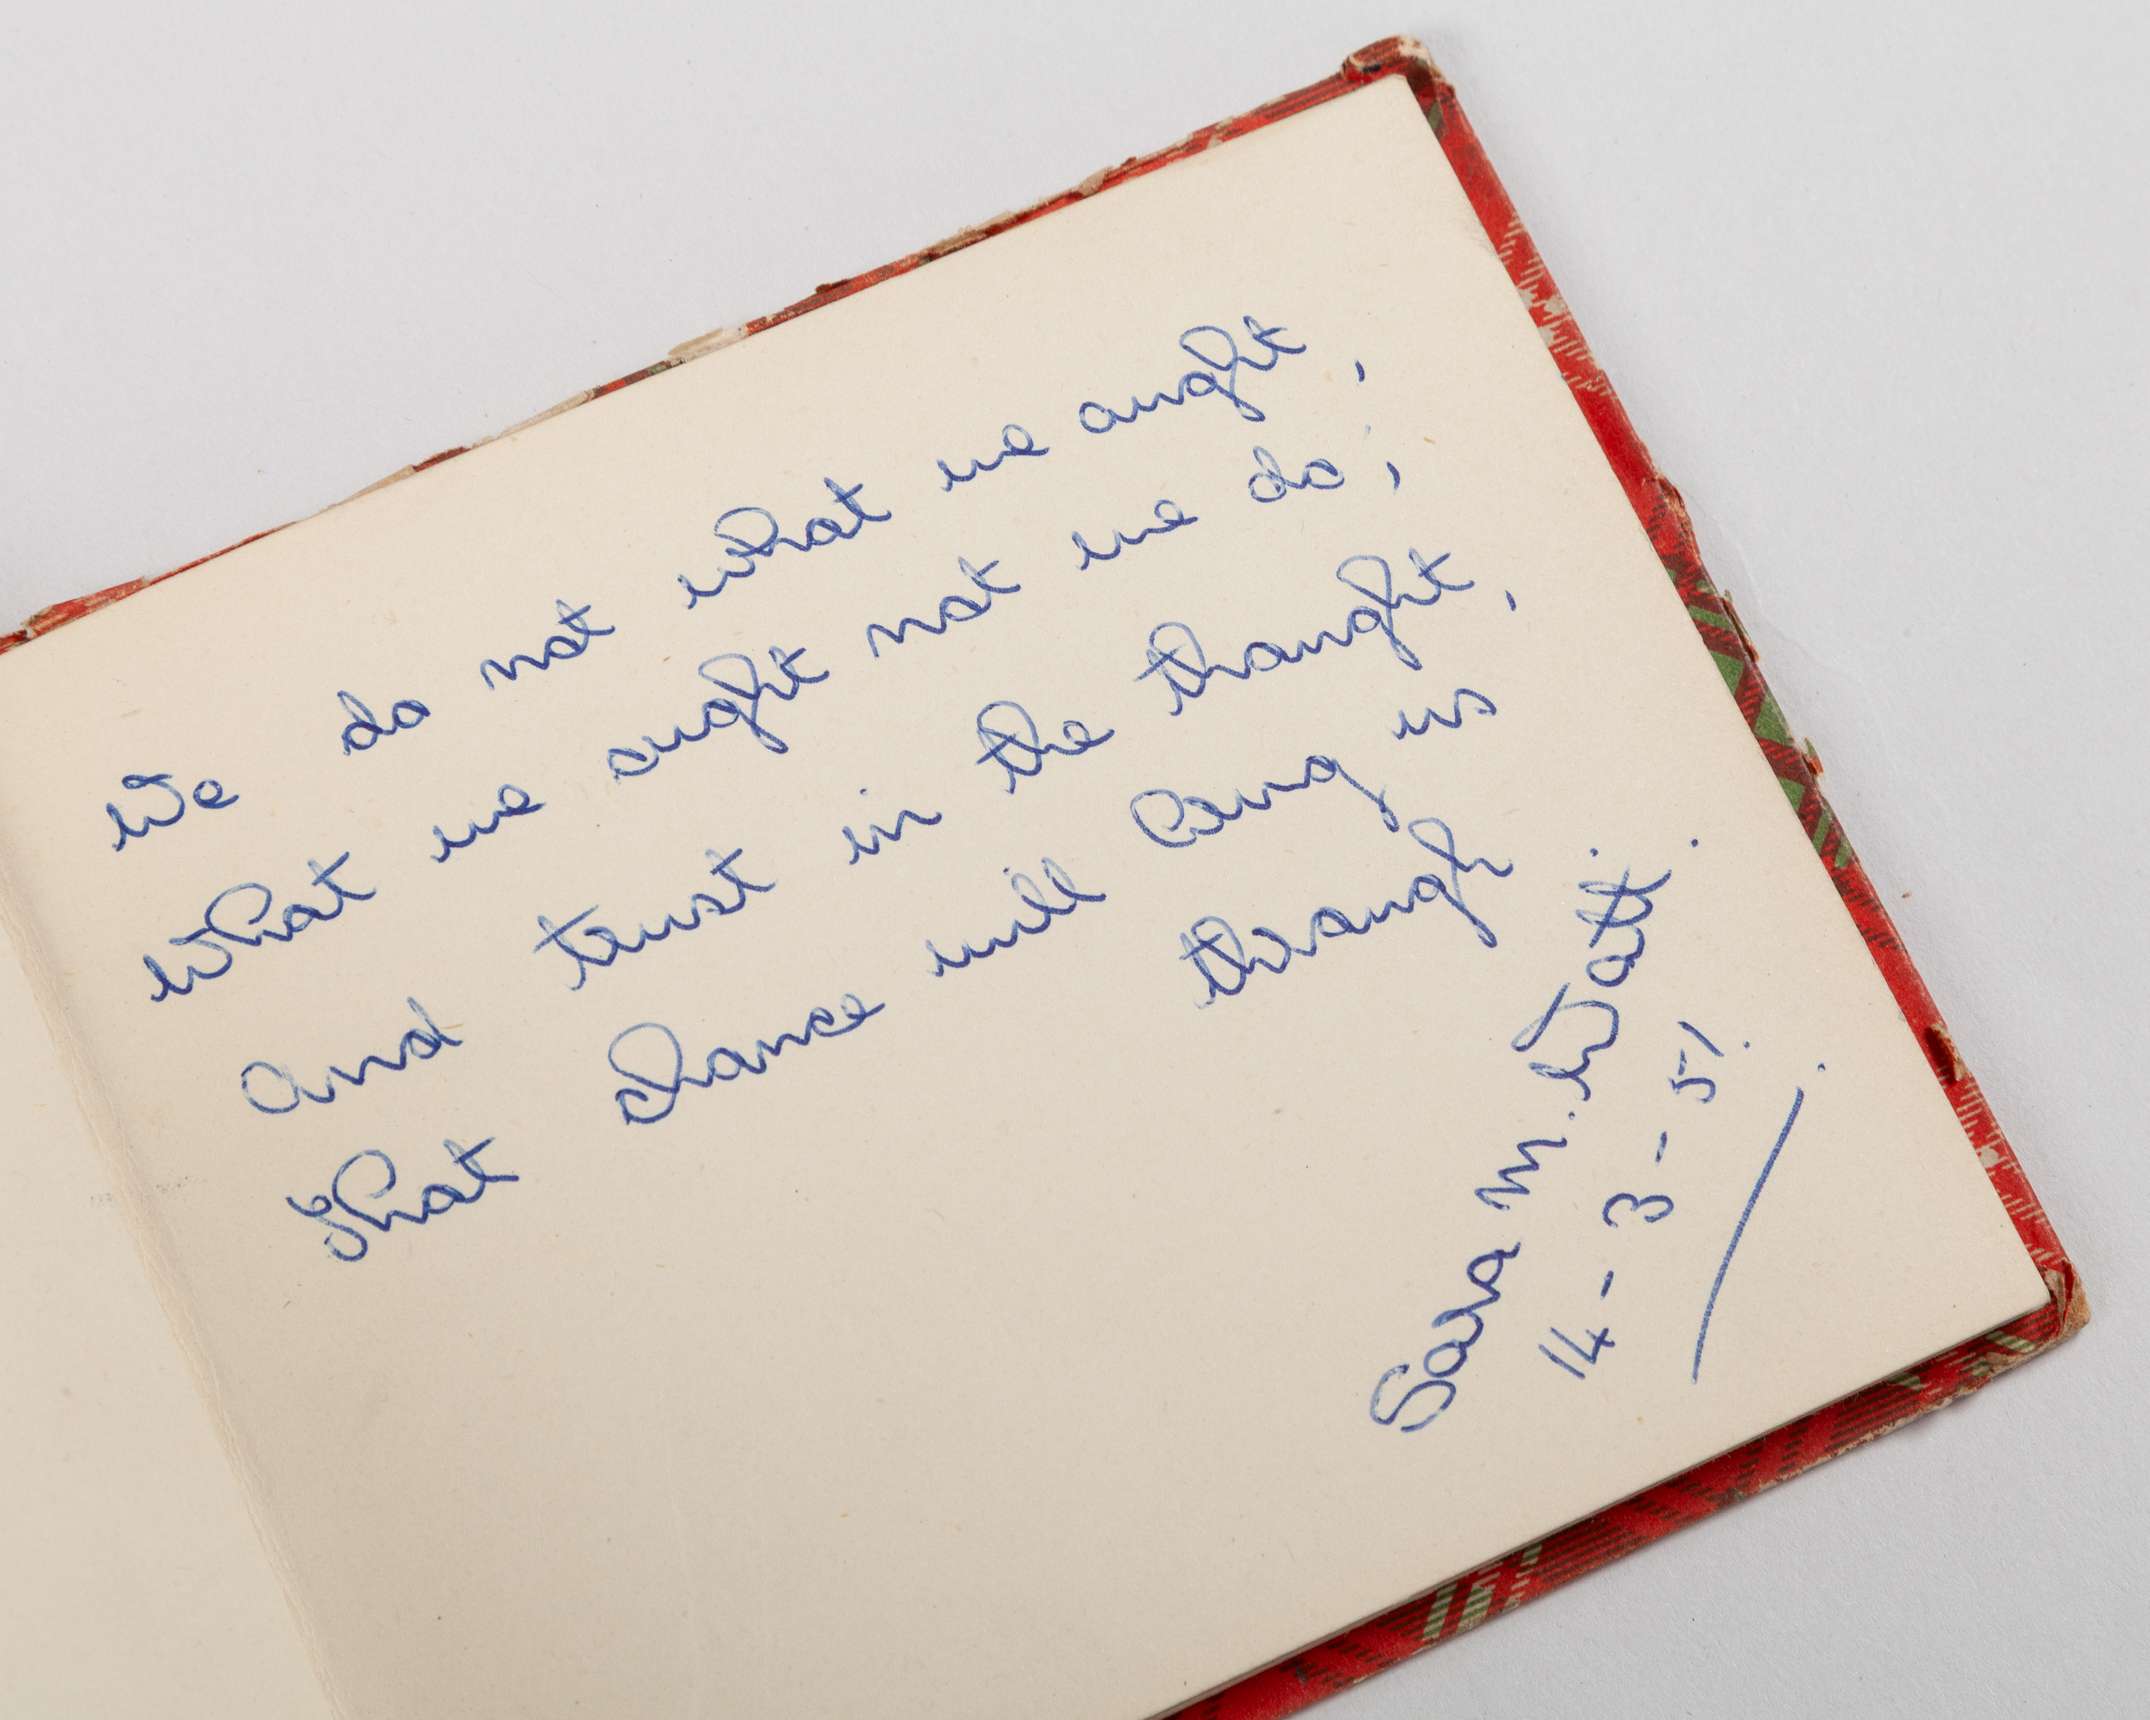 We do not what we ought,
What we ought not we do;
And trust in the thought,
That chance will bring us
through
Sara M. Watt.
14-3-51.